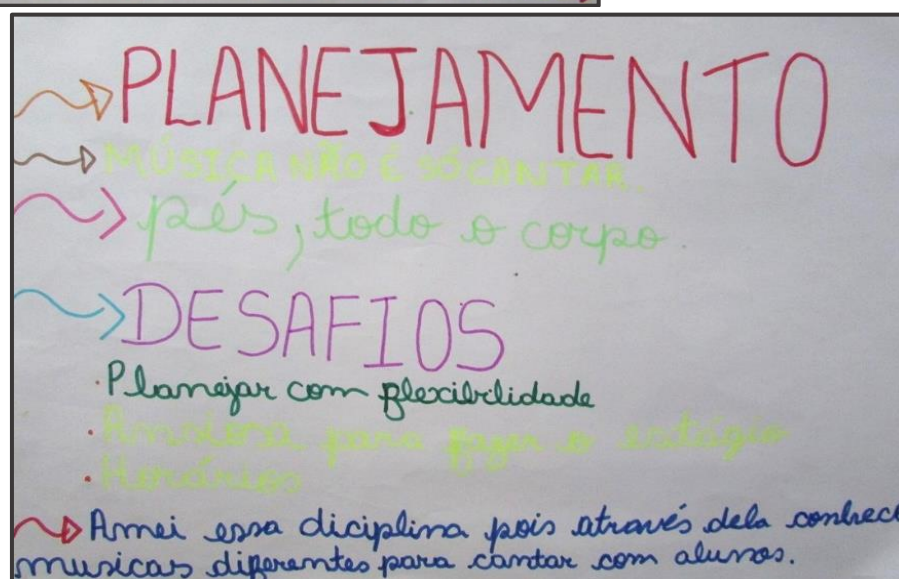 PLANEJAMENTO
MÚSICA NÃO É SÓ CANTAR.
pés, todo o corpo.
DESAFIOS
· Planejar com flexibilidade
· Ansiosa para fazer o estágio
· Horários
Amei essa diciplina pois através dela conheci
musicas diferentes para cantar com alunos.